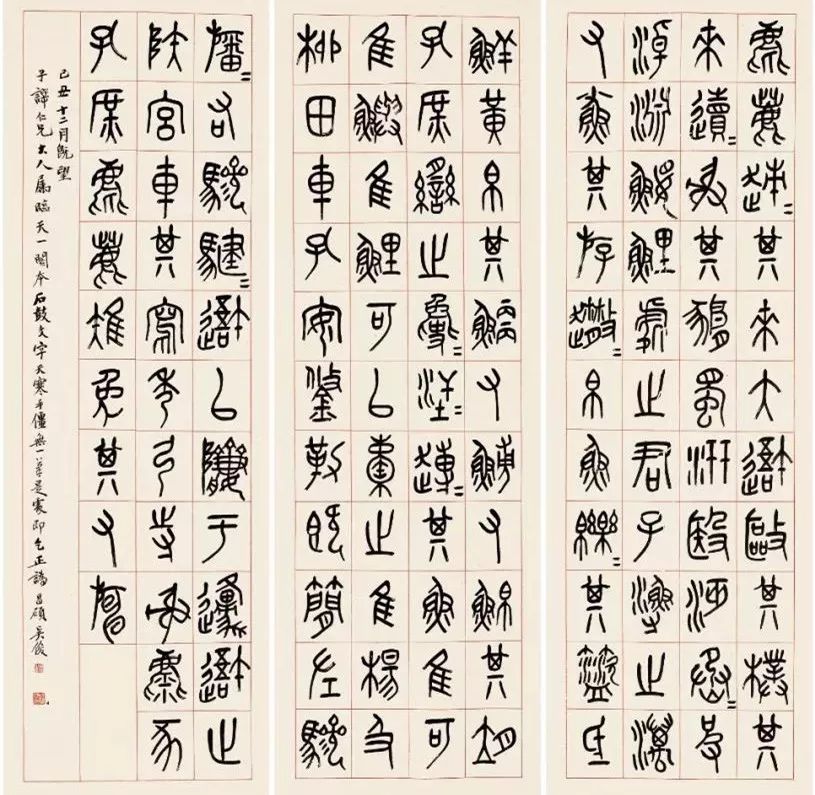 麀鹿趚=其來大䢜敺其樸其
來遺=射其豜蜀汧殹沔烝=皮
淖淵鰋鯉處之君子漁之澫
又鯊其斿趣=帛魚皪=其籃氐
鮮黃帛其鯿又鯆又鮊其䀇
孔庶臠之夐=汗=趨=其魚隹可
隹鱮隹鯉可以橐之隹楊及
柳田車孔安鋚勒既簡左驂
旛=右驂騝=䢜以隮于邍䢜止
陕宮車其寫秀弓寺射麋豕
孔庶麀鹿雉兔其又
己丑十二月既望
子諄仁兄大人屬臨天一閣本石鼓文字天寒手僵無一筆是處即乞正譌昌碩吳俊